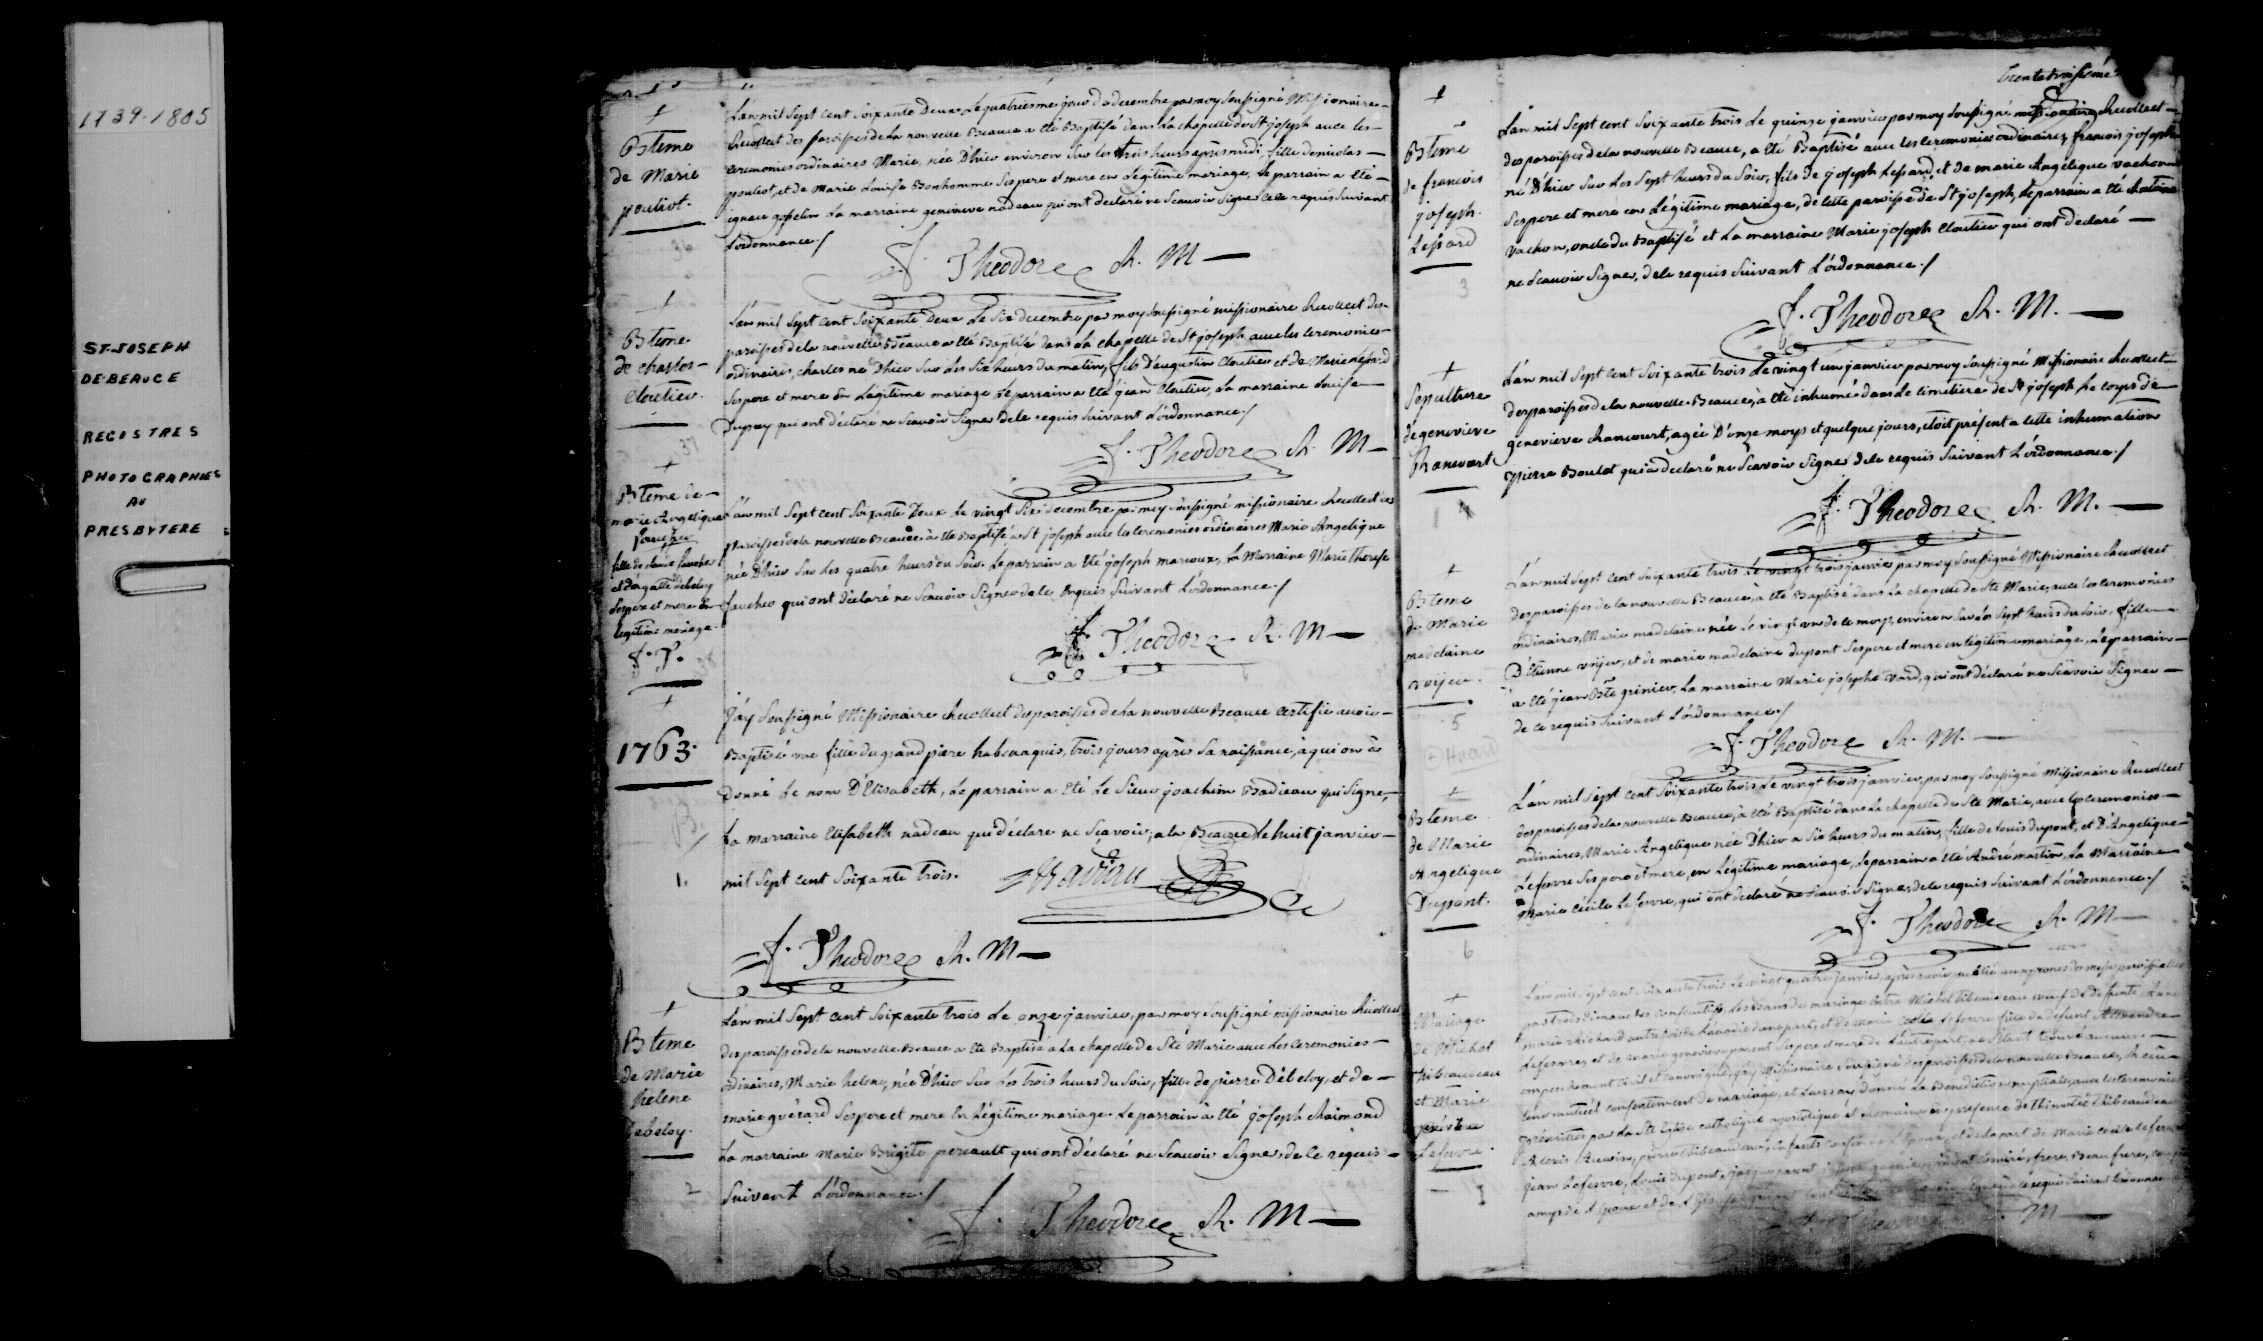 1739-1805
ST-JOSEPH
DE-BEAUCE
REGISTRES
PHOTOGRAPHIES
AU
PRESBYTERE
+
Bteme
de Marie
pouliot.
L'an mil Sept cent Soixante Deux Le quatriesme jour de decembre par moy Soussigné Missionaire
Recollect des paroisses de La nouvelle Beauce a été Baptisé dans La chapelle de St joseph avec les
ceremonies ordinaires Marie, née D'hier environ Sur les trois heurs après midi, fille de nicolas
pouliot, et de Marie Louise Bonhomme Ses pere et mere en Légitime mariage, Le parrain a été
ignace gosselin La marraine genevieve nadeau qui ont declaré ne Scavoir Signer de ce requis Suivant
L'ordonnance./
36
f. Theodore R. M
+
Bteme
de charles
Cloutier.
L'an mil Sept cent Soixante Deux Le Six decembre par moy Soussigné missionaire Recollect des
paroisses de la nouvelle Beauce a été Baptisé dans La chapelle de St joseph avec les ceremonies
ordinaires, charles né D'hier Sur les Six heurs du matin, fils D'augustin Cloutier et de Marie
Ses pere et mere En Légitime mariage Le parrain a été jean Cloutier, La marraine Louise
Dupuy qui ont déclaré ne Scavoir Signer de ce requis Suivant L'ordonnance./
37
f. Theodore R. M
+
Bteme de
marie Angelique
faucher
fille de faucher
et d'agathe
Ses pere et mere En
legitime mariage.
f. T.
38
L'an mil Sept cent Soixante Deux Le vingt Six decembre par moy Soussigné missionaire Recollect des
paroisses de la nouvelle Beauce a été Baptisé a St joseph avec les ceremonies ordinaires Marie Angelique
née D'hier Sur les quatre heurs du Soir. Le parrain a été joseph marcoux, La Marraine Marie Therese
faucher qui ont déclaré ne Scavoir Signer de ce requis Suivant L'ordonnance./
f. Theodore R. M
+
1763.
1.
J'ay Soussigné Missionaire Recollect des paroisses de La nouvelle Beauce Certifie avoir
Baptisé une fille du grand pierre habenaquis, trois jours après Sa naissance, a qui on a
donné Le nom D'Elisabeth, Le parrain a été Le Sieur joachim Badieau qui Signe,
La marraine Elisabeth nadeau qui déclare ne Sçavoir, a la Beauce Le huit janvier
mil Sept cent Soixante trois.
f. Theodore R. M
+
Bteme
de Marie
helene
Debeloy.
2
L'an mil Sept cent Soixante trois Le onze janvier, par moy Soussigné missionaire Recollect
des paroisses de la nouvelle Beauce a été Baptisé a La chapelle de Ste Marie avec Les ceremonies
ordinaires, Marie helene, née D'hier Sur Les trois heurs du Soir, fille de pierre Débeloy, et de
marie guérard Ses pere et mere En Légitime mariage Le parrain a été joseph Raimond
La marraine Marie Brigite percault qui ont déclaré ne Scavoir Signer, de ce requis
Suivant L'ordonnance./
f. Theodore R. M
trente troisieme
+
Bteme
de francois
joseph.
Lessard
3
L'an mil Sept cent Soixante trois Le quinze janvier par moy Soussigné missionaire Recollect
des paroisses de la nouvelle Beauce, a été Baptisé avec les ceremonies ordinaires, francois joseph
né D'hier Sur Les Sept heurs du Soir, fils de joseph Lessard, et de marie Angelique vachon
Ses pere et mere en Légitime mariage, de cette paroisse de St joseph, Le parrain a été Antoine
vachon, oncle du Baptisé et La marraine Marie joseph Cloutier qui ont declaré
ne Scavoir Signer, de ce requis Suivant L'ordonnance./
f. Theodore R. M.
+
Sépulture
de genevieve
Rancourt
L'an mil Sept cent Soixante trois Le vingt un janvier par moy Soussigné Missionaire Recollect
des paroisses de la nouvelle Beauce, a été inhumé dans Le cimetiere de St joseph Le corps de
genevieve Rancourt, agée D'onze moys et quelque jours, etoit présent a cette inhumation
pierre Boulet qui a declaré ne Scavoir Signer de ce requis Suivant L'ordonnance./
f. Theodore R. M.
+
Bteme
de Marie
madelaine
voyer.
5
L'an mil Sept cent Soixante trois Le vingt trois janvier par moy Soussigné Missionaire Recollect
des paroisses de la nouvelle Beauce, a été Baptisé dans La chapelle de Ste Marie, avec les ceremonies
ordinaires, Marie madelaine née Le vingt un de ce moys, environ Sur les Sept heurs du Soir, fille
D'Etienne voyer, et de marie madelaine dupont Ses pere et mere en Légitime mariage, Le parrain
a été jean Bte grenier, La marraine Marie josephe, qui ont déclaré ne Scavoir Signer
de ce requis Suivant L'ordonnance./
f. Theodore R. M.
+
Bteme
de Marie
Angelique
Dupont.
6
L'an mil Sept cent Soixante trois Le vingt trois janvier, par moy Soussigné Missionaire Recollect
des paroisses de la nouvelle Beauce, a été Baptisé dans La chapelle de Ste Marie, avec les ceremonies
ordinaires, Marie Angelique née D'hier a Six heurs du matin, fille de Louis dupont, et D'Angelique
Lefevre Ses pere et mere, en Légitime mariage, Le parrain a été André martin, La Marraine
Marie cécile Lefevre, qui ont declaré ne Scavoir Signer, de ce requis Suivant L'ordonnance./
f. Theodore R. M
+
Mariage
de Michel
thibaudeau
et Marie
Lefevre.
L'an mil Sept cent Soixante trois Le vingt quatre janvier, après avoir publié aux prones des messes paroissialles
par trois dimanches consecutifs Les bans de mariage entre Michel thibaudeau veuf de defunte Anne
marie Richard d'une part, et de Marie Lefevre fille de defunt Alexandre
Lefevre, et de marie genevieve Ses pere et mere de L'autre part, ne S'étant trouvé aucun
empechement Missionaire Soussigné des paroisses de la nouvelle Beauce, Reçu
Leur mutuel consentement de mariage, et Leurs ay donné La Benediction nuptiale, avec les ceremonies
prescrites par La Ste Eglise catholique apostolique et romaine, en presence de thibaudeau
jean Lefevre, Louis dupont
f. Theodore R. M